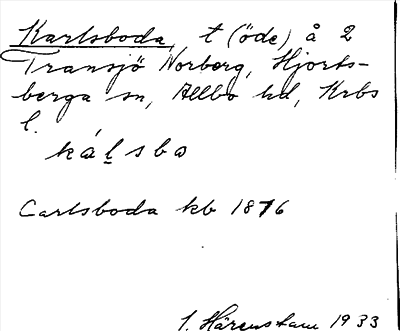 Karlsboda, t (öde) å 2
Transjö Norberg, Hjorts-
berga sn, Allbo hd, Krbs
l.
kálsbo
Carlsboda kb 1876
I. Härenstam 1933